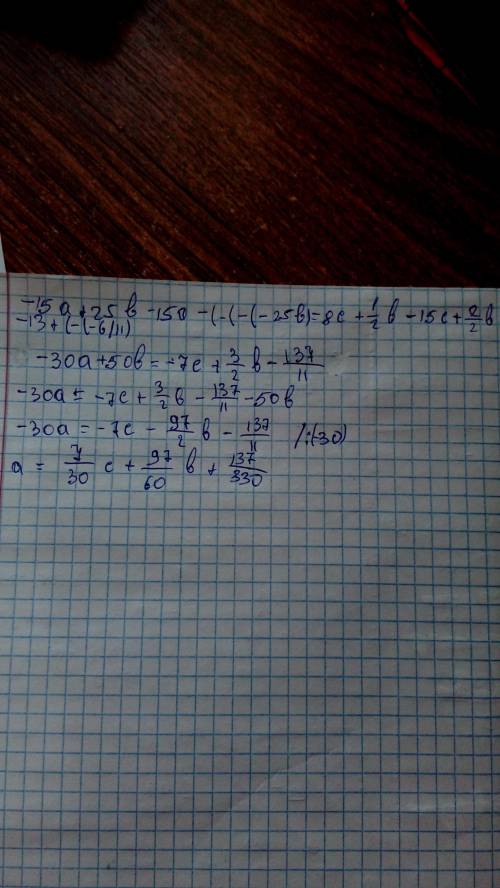 -15a+25в-15a-(-(-(-(-25в)=8c+1/2в-15c+2/2в
-13+(-(-6/11)
-30a+50в=-7c+3/2в-137/11
-30a=-7c+3/2в-137/11-50в
-30a=-7c-97/2в-137/11 /:(30)
a=7/30c+97/60в+137/330